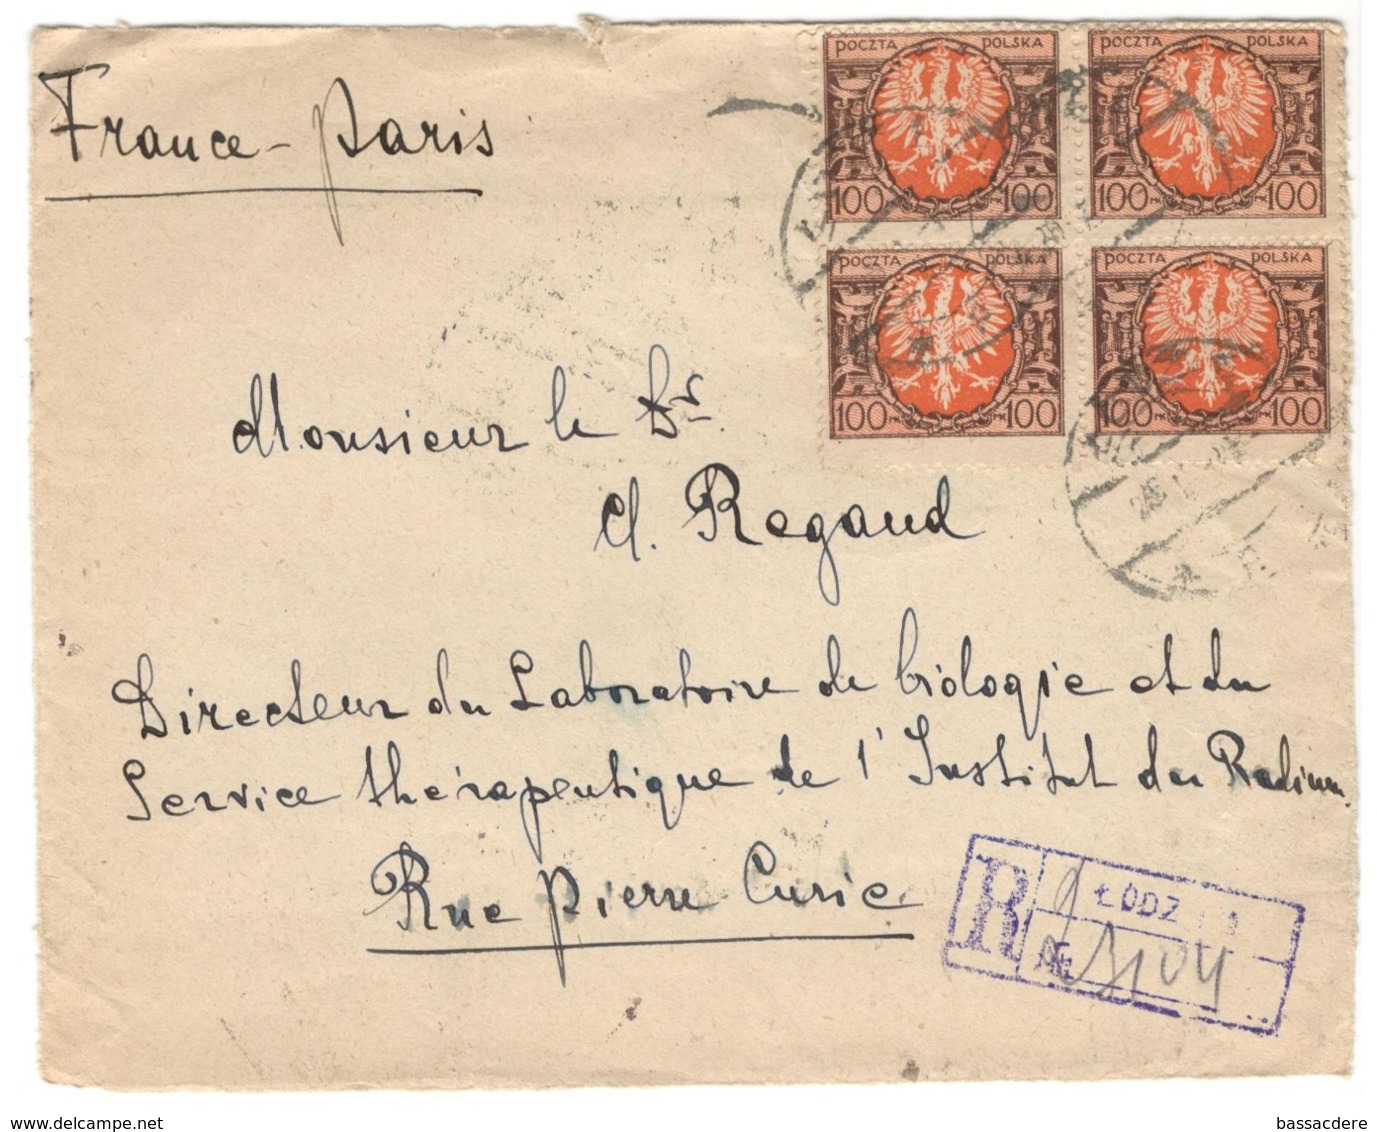 France - Paris
POCZTA POLSKA POCZTA POLSKA
100 100 100 100
POCZTA POLSKA POCZTA POLSKA
100 100 100 100
Monsieur le Dr.
Cl. Regaud
Directeur du Laboratoire de biologie et du
Service thérapeutique de l'Institut du Radium
Rue Pierre Curie
R ŁÓDŹ
№
www.delcampe.net
bassacdere